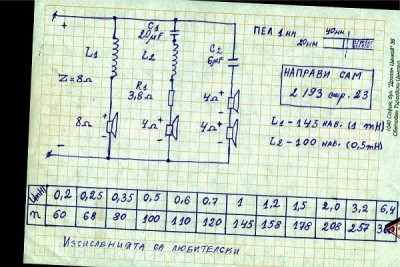 +
C1
20μF
L1
L2
C2
6μF
Z=8Ω
R1
3,8Ω
8Ω
4Ω
4Ω
4Ω
+
+
+
+
-
ПЕЛ 1мм
40мм
20мм
НАПРАВИ САМ
2/93 стр. 23
L1-145 нав. (1 mH)
L2-100 нав. (0,5mH)
1040 София, бул. "Драган Цанков" 36
Световен Търговски Център
L mH 0,2 0,25 0,35 0,5 0,6 0,7 1 1,2 1,5 2,0 3,2 6,4
n 60 68 80 100 110 120 145 158 178 208 257
ИЗЧИСЛЕНИЯТА СА ЛЮБИТЕЛСКИ